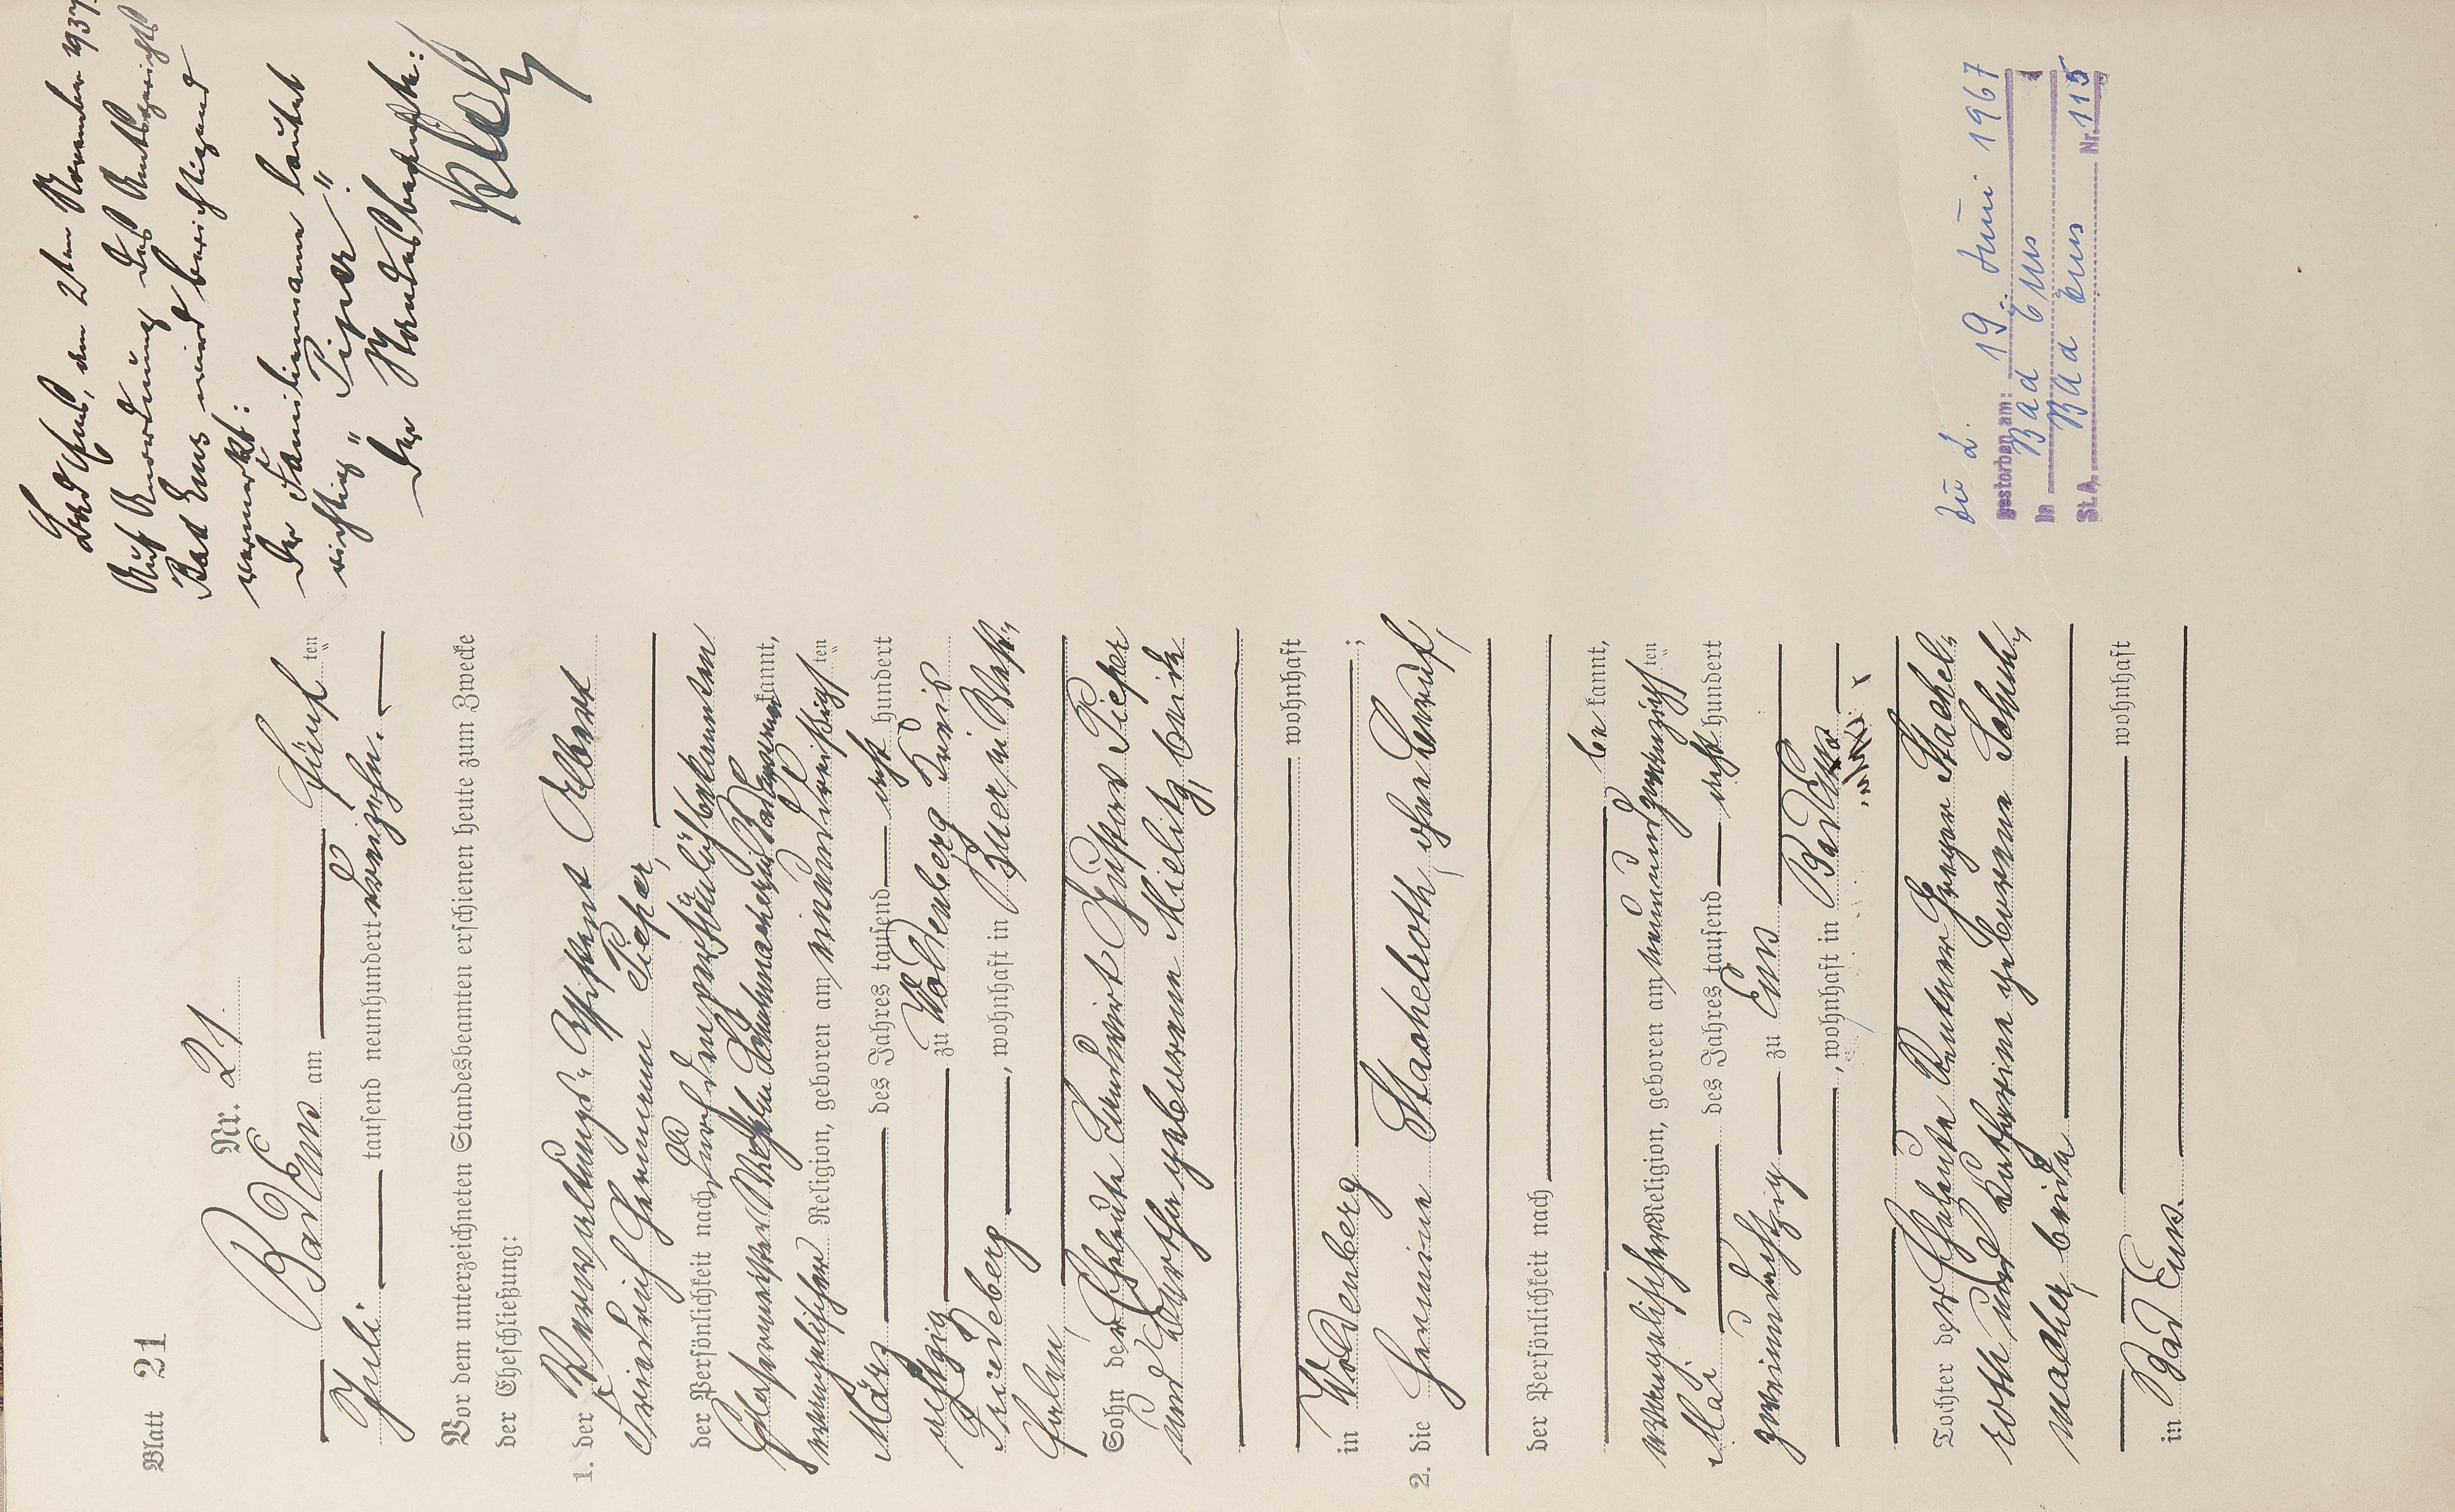 Blatt 21
Nr. 21.
Bad Ems am fünften
Juli tausend neunhundert dreizehn.
Vor dem unterzeichneten Standesbeamten erschienen heute zum Zwecke
der Eheschließung:
1. der Verwaltungs-Assistent Albert
Friedrich Hermann Pieper,
der Persönlichkeit nach durch den persönlich bekannten
Schuhmacher in Bad Ems anerkannt,
evangelischer Religion, geboren am einunddreißigsten
März des Jahres tausend acht hundert
achtzig zu Woldenberg Kreis
Friedeberg, wohnhaft in Buer in Westfalen,
Sohn der Eheleute Landwirt Gustav Pieper
und Bertha geborene Mielitz, beide
wohnhaft
in Woldenberg;
2. die Hermine Stachelroth, ohne Beruf,
der Persönlichkeit nach
bekannt,
evangelischer Religion, geboren am neunundzwanzigsten
Mai des Jahres tausend acht hundert
zweiundachtzig zu Ems
, wohnhaft in Bad Ems
Tochter der Eheleute Rentner Gregor Stachel-
roth und Katharine geborene Schuh-
macher, beide
wohnhaft
in Bad Ems.
Bad Ems, den 2ten November 1937.
Auf Anordnung des Amtsgerichts
Bad Ems wird berichtigend
vermerkt:
Der Familienname lautet
richtig "Piper".
Der Standesbeamte:
die 2.
gestorben am: 19. Juni 1967
in Bad Ems
St.A. Bad Ems Nr. 115